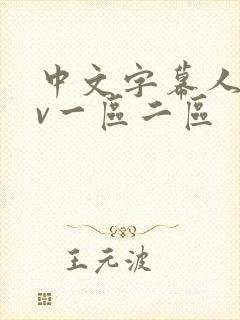 中文字幕人
v一區二區
王元波